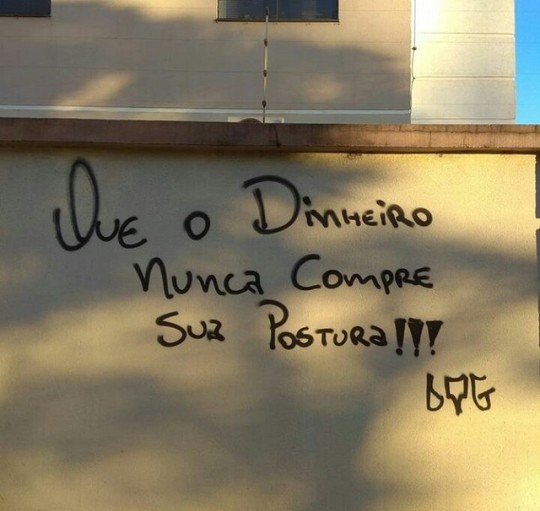 Que o Dinheiro
Nunca Compre
Sua Postura!!!